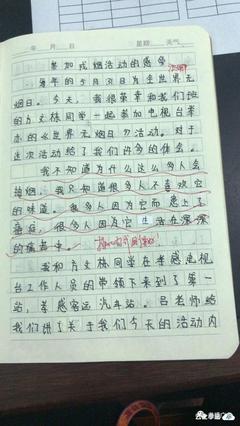 年 月 日 星期 天气
参加戒烟活动的感受
每年的5月31日为全世界无
烟日。今天,我很荣幸和我们班
的方文栋同学一起参加电视台举
办的《世界无烟日》活动。对于
这次活动给了我们许多的体会。
我不知道为什么这么多人会
抽烟,我只知道很多人不喜欢它
的味道。很多人因为它而患上了
癌症,很多人因为它生活在深深
的痛苦中。
我和方文栋同学在孝感电视
台工作人员的带领下来到了第一
站,孝感客运汽车站。吕老师给
我们讲了关于我们今天的活动内